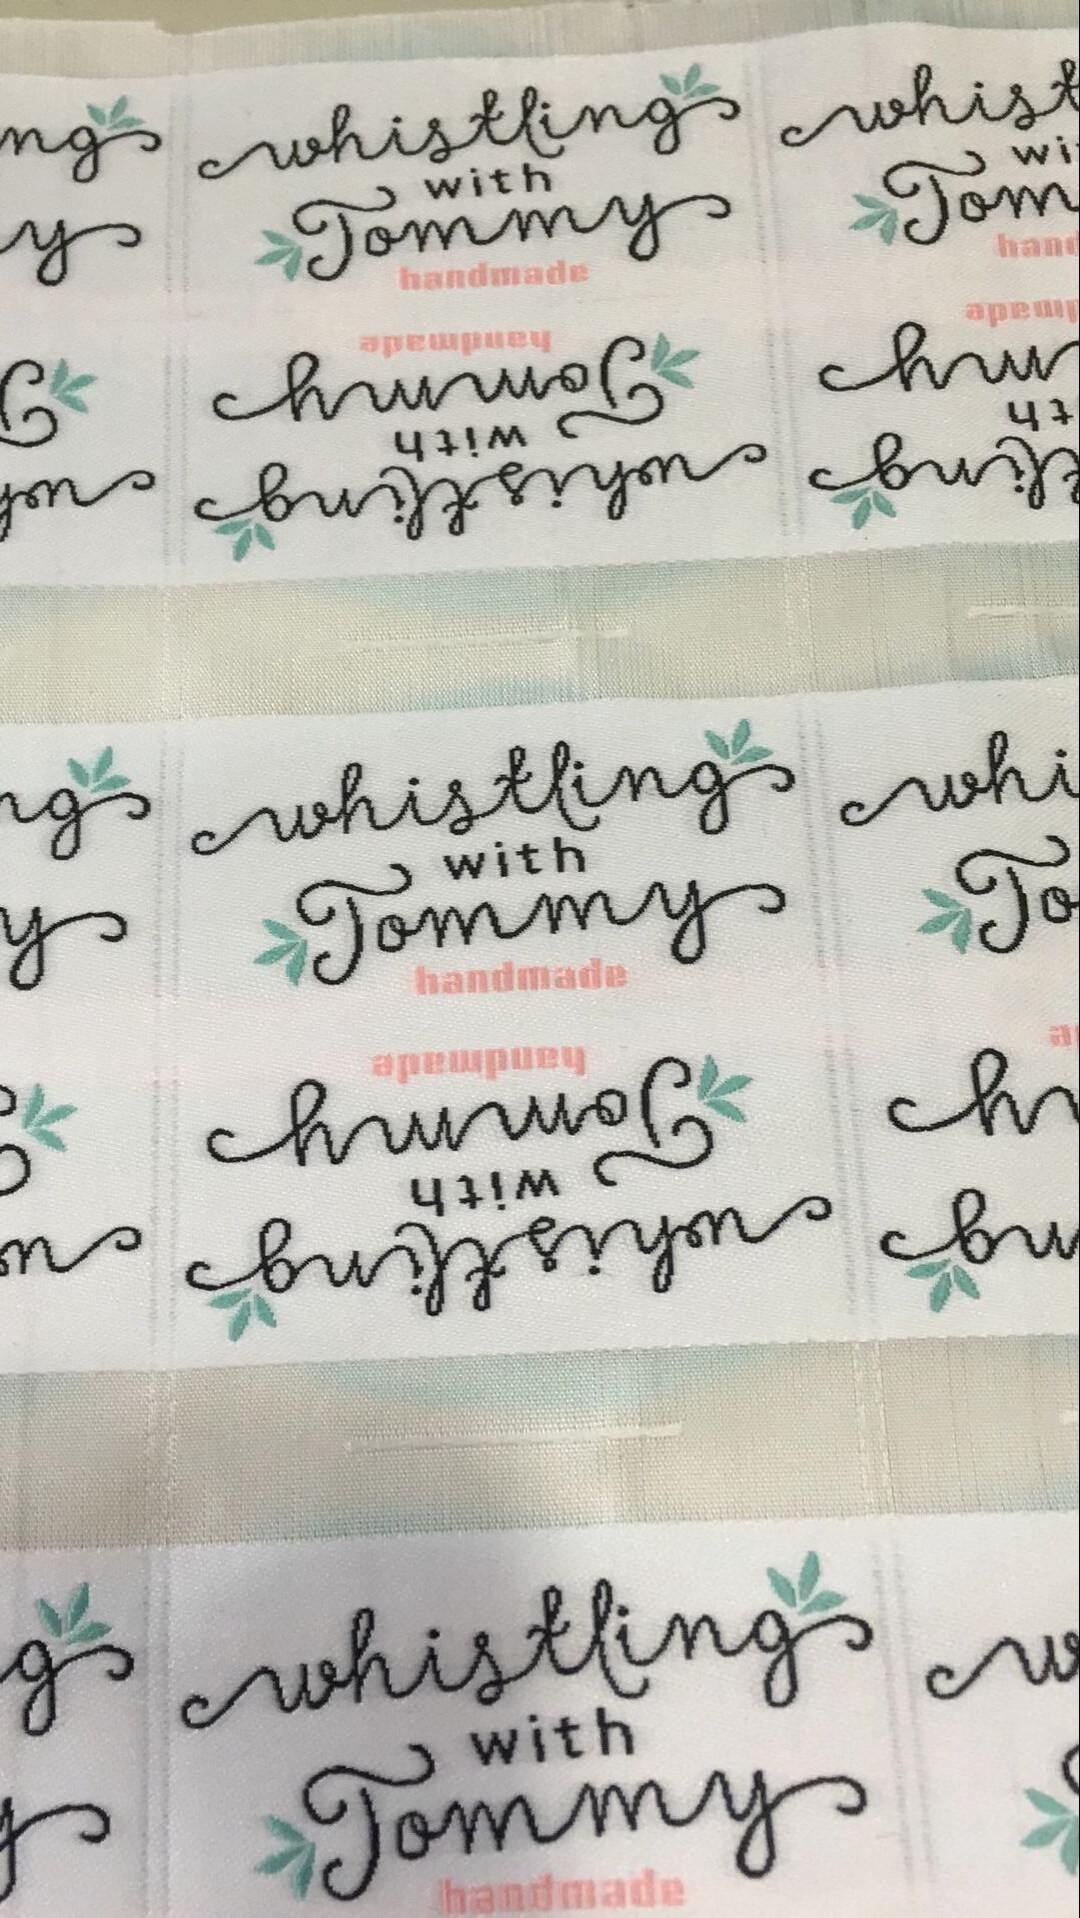 whistling
with
Tommy
handmade
handmade
Tommy
with
whistling
whistling
with
Tommy
handmade
handmade
Tommy
with
whistling
whistling
with
Tommy
handmade